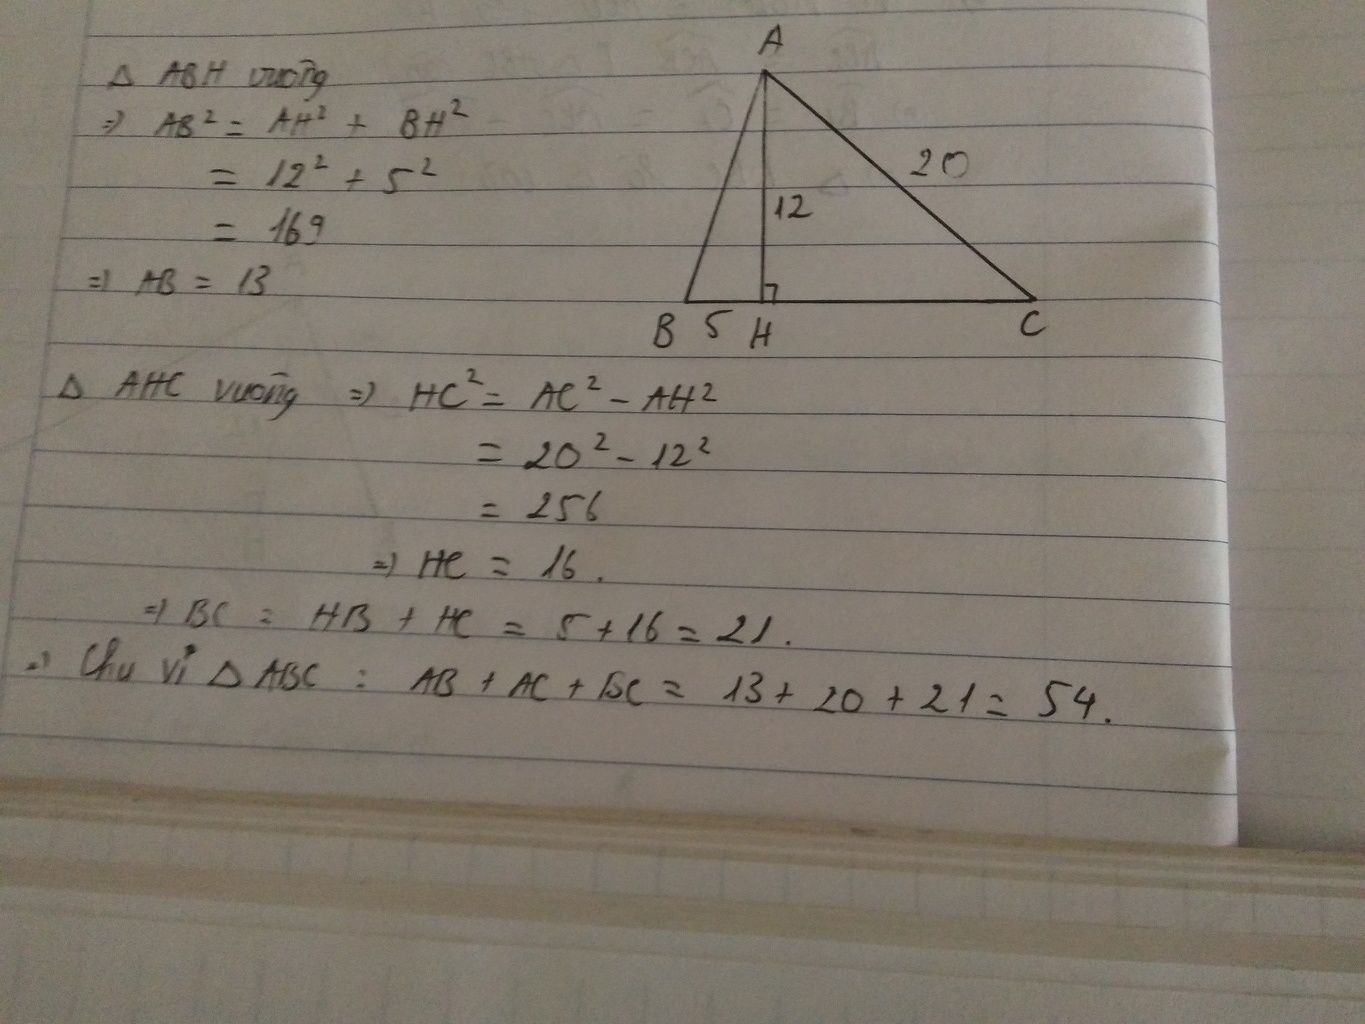 Δ ABH vuông
=) AB² = AH² + BH²
= 12² + 5²
= 169
=) AB = 13
A
20
12
B 5 H C
Δ AHC vuông =) HC² = AC² - AH²
= 20² - 12²
= 256
=) HC = 16.
=) BC = HB + HC = 5 + 16 = 21.
=) Chu vi Δ ABC : AB + AC + BC = 13 + 20 + 21 = 54.